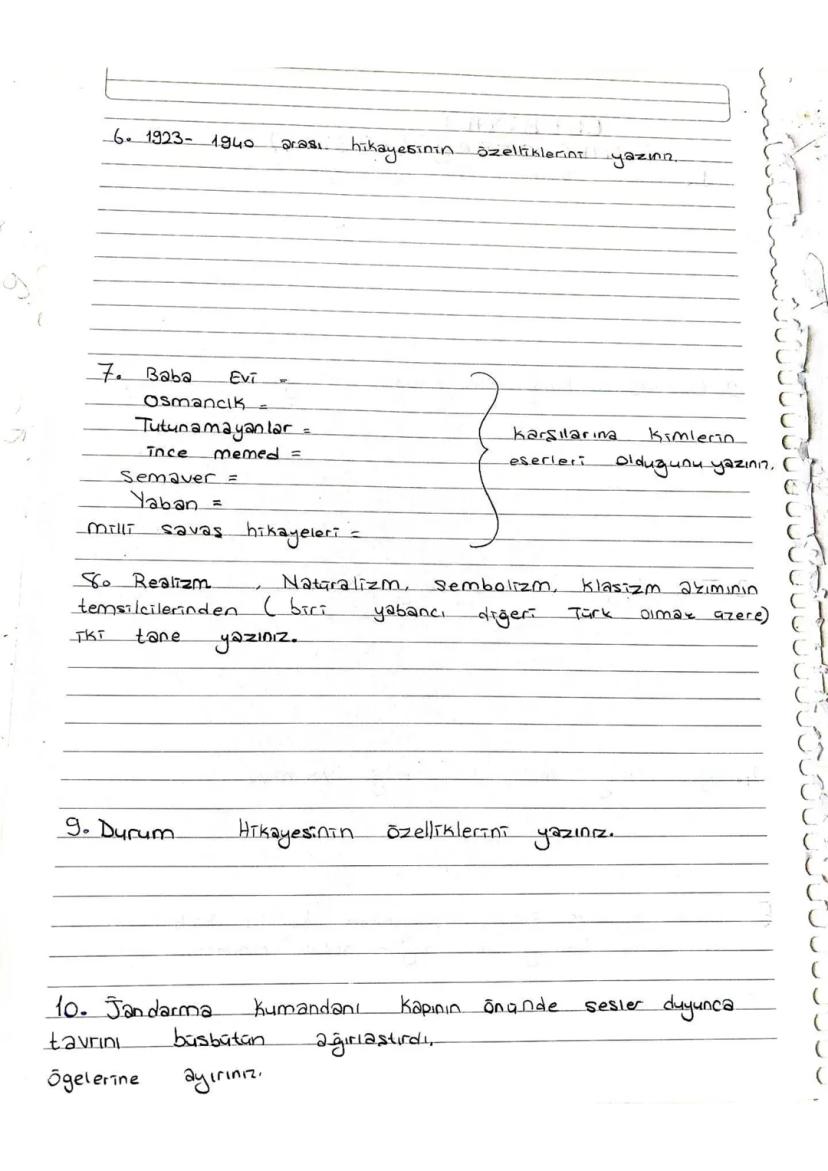 6. 1923- 1940 arası hikayesinin özelliklerini yazınız.
7. Baba Evi =
Osmancık =
Tutunamayanlar =
ince memed =
Semaver =
Yaban =
milli savaş hikayeleri =
Karşılarına kimlerin
eserleri olduğunu yazınız.
8. Realizm , Natüralizm, sembolizm, klasizm akımının
temsilcilerinden ( biri yabancı diğeri Türk olmak üzere)
iki tane yazınız.
9. Durum Hikayesinin özelliklerini yazınız.
10. Jandarma kumandanı kapının önünde sesler duyunca
tavrını büsbütün ağırlaştırdı.
ögelerine ayırınız.